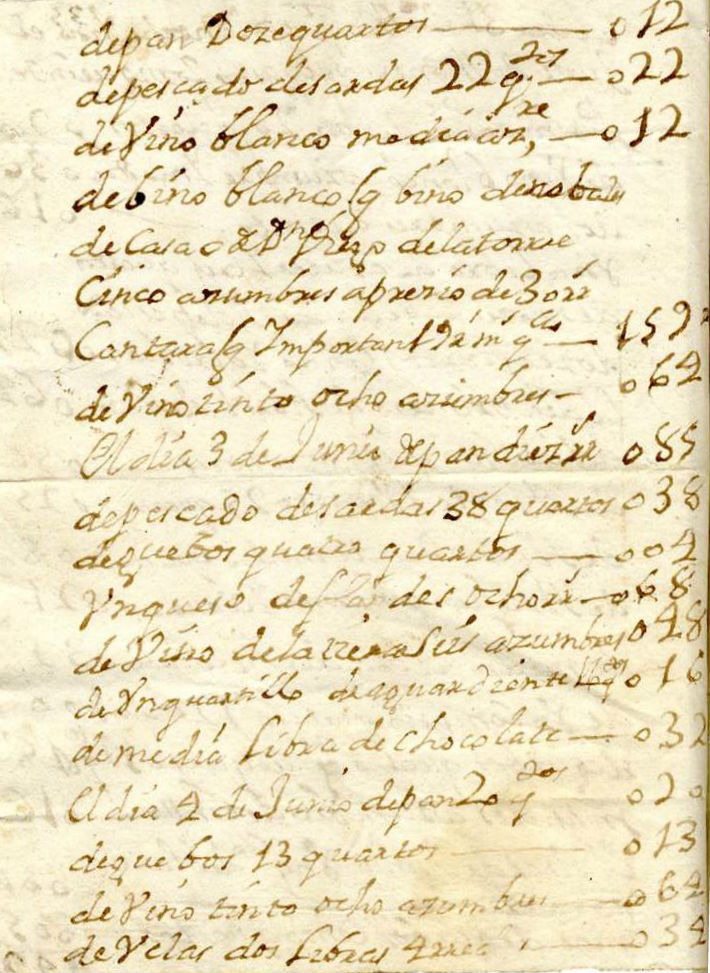 de pan Doze quartos — 012
de pescado de sardas 22 qtos — 022
de Vino blanco media az re — 012
de bino blanco q bino de
de Casa de Dn Diego de la torre
Cinco azumbres a prezio de 30 rr
Cantara q Important qos — 159
de Vino tinto ocho azumbres — 064
El dia 3 de Junio de pan diez rr 085
de pescado de sardas 38 quartos 038
de guebos quatro quartos — 004
Vn queso de flandes ocho rr — 068
de Vino de la tierra seis azumbres 048
de Vn quartillo de aguardiente 16 q 016
de media libra de chocolate — 032
El dia 4 de Junio de pan 20 qtos 020
de guebos 13 quartos — 013
de Vino tinto ocho azumbres — 064
de Velas dos libras 4 — 034